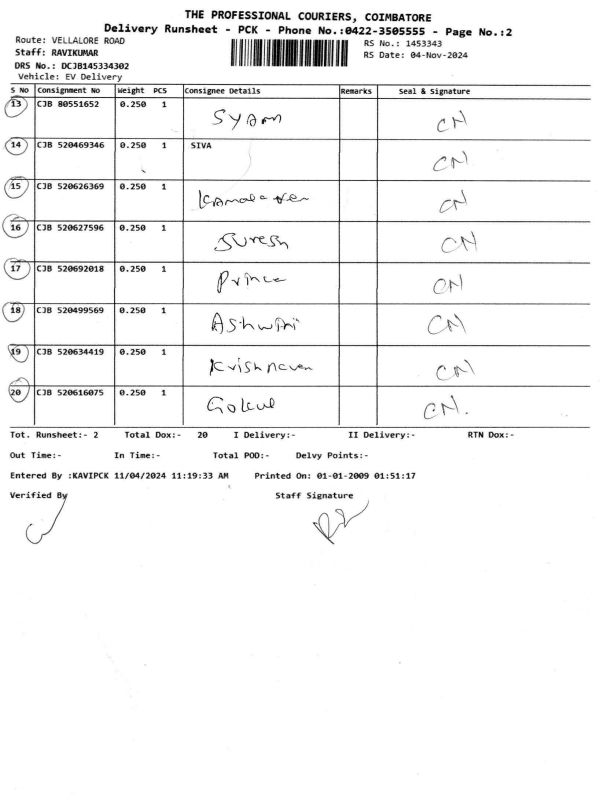 THE PROFESSIONAL COURIERS, COIMBATORE
Delivery Runsheet - PCK - Phone No.:0422-3505555 - Page No.:2
Route: VELLALORE ROAD
RS No.: 1453343
Staff: RAVIKUMAR
RS Date: 04-Nov-2024
DRS No.: DCJB145334302
Vehicle: EV Delivery
S No Consignment No Weight PCS Consignee Details Remarks Seal & Signature
13 CJB 80551652 0.250 1 Syam CN
14 CJB 520469346 0.250 1 SIVA CN
15 CJB 520626369 0.250 1 CN
16 CJB 520627596 0.250 1 Suresh CN
17 CJB 520692018 0.250 1 Prince CN
18 CJB 520499569 0.250 1 Ashwini CN
19 CJB 520634419 0.250 1 CN
20 CJB 520616075 0.250 1 Gokul CN.
Tot. Runsheet:- 2 Total Dox:- 20 I Delivery:- II Delivery:- RTN Dox:-
Out Time:- In Time:- Total POD:- Delvy Points:-
Entered By :KAVIPCK 11/04/2024 11:19:33 AM Printed On: 01-01-2009 01:51:17
Verified By Staff Signature